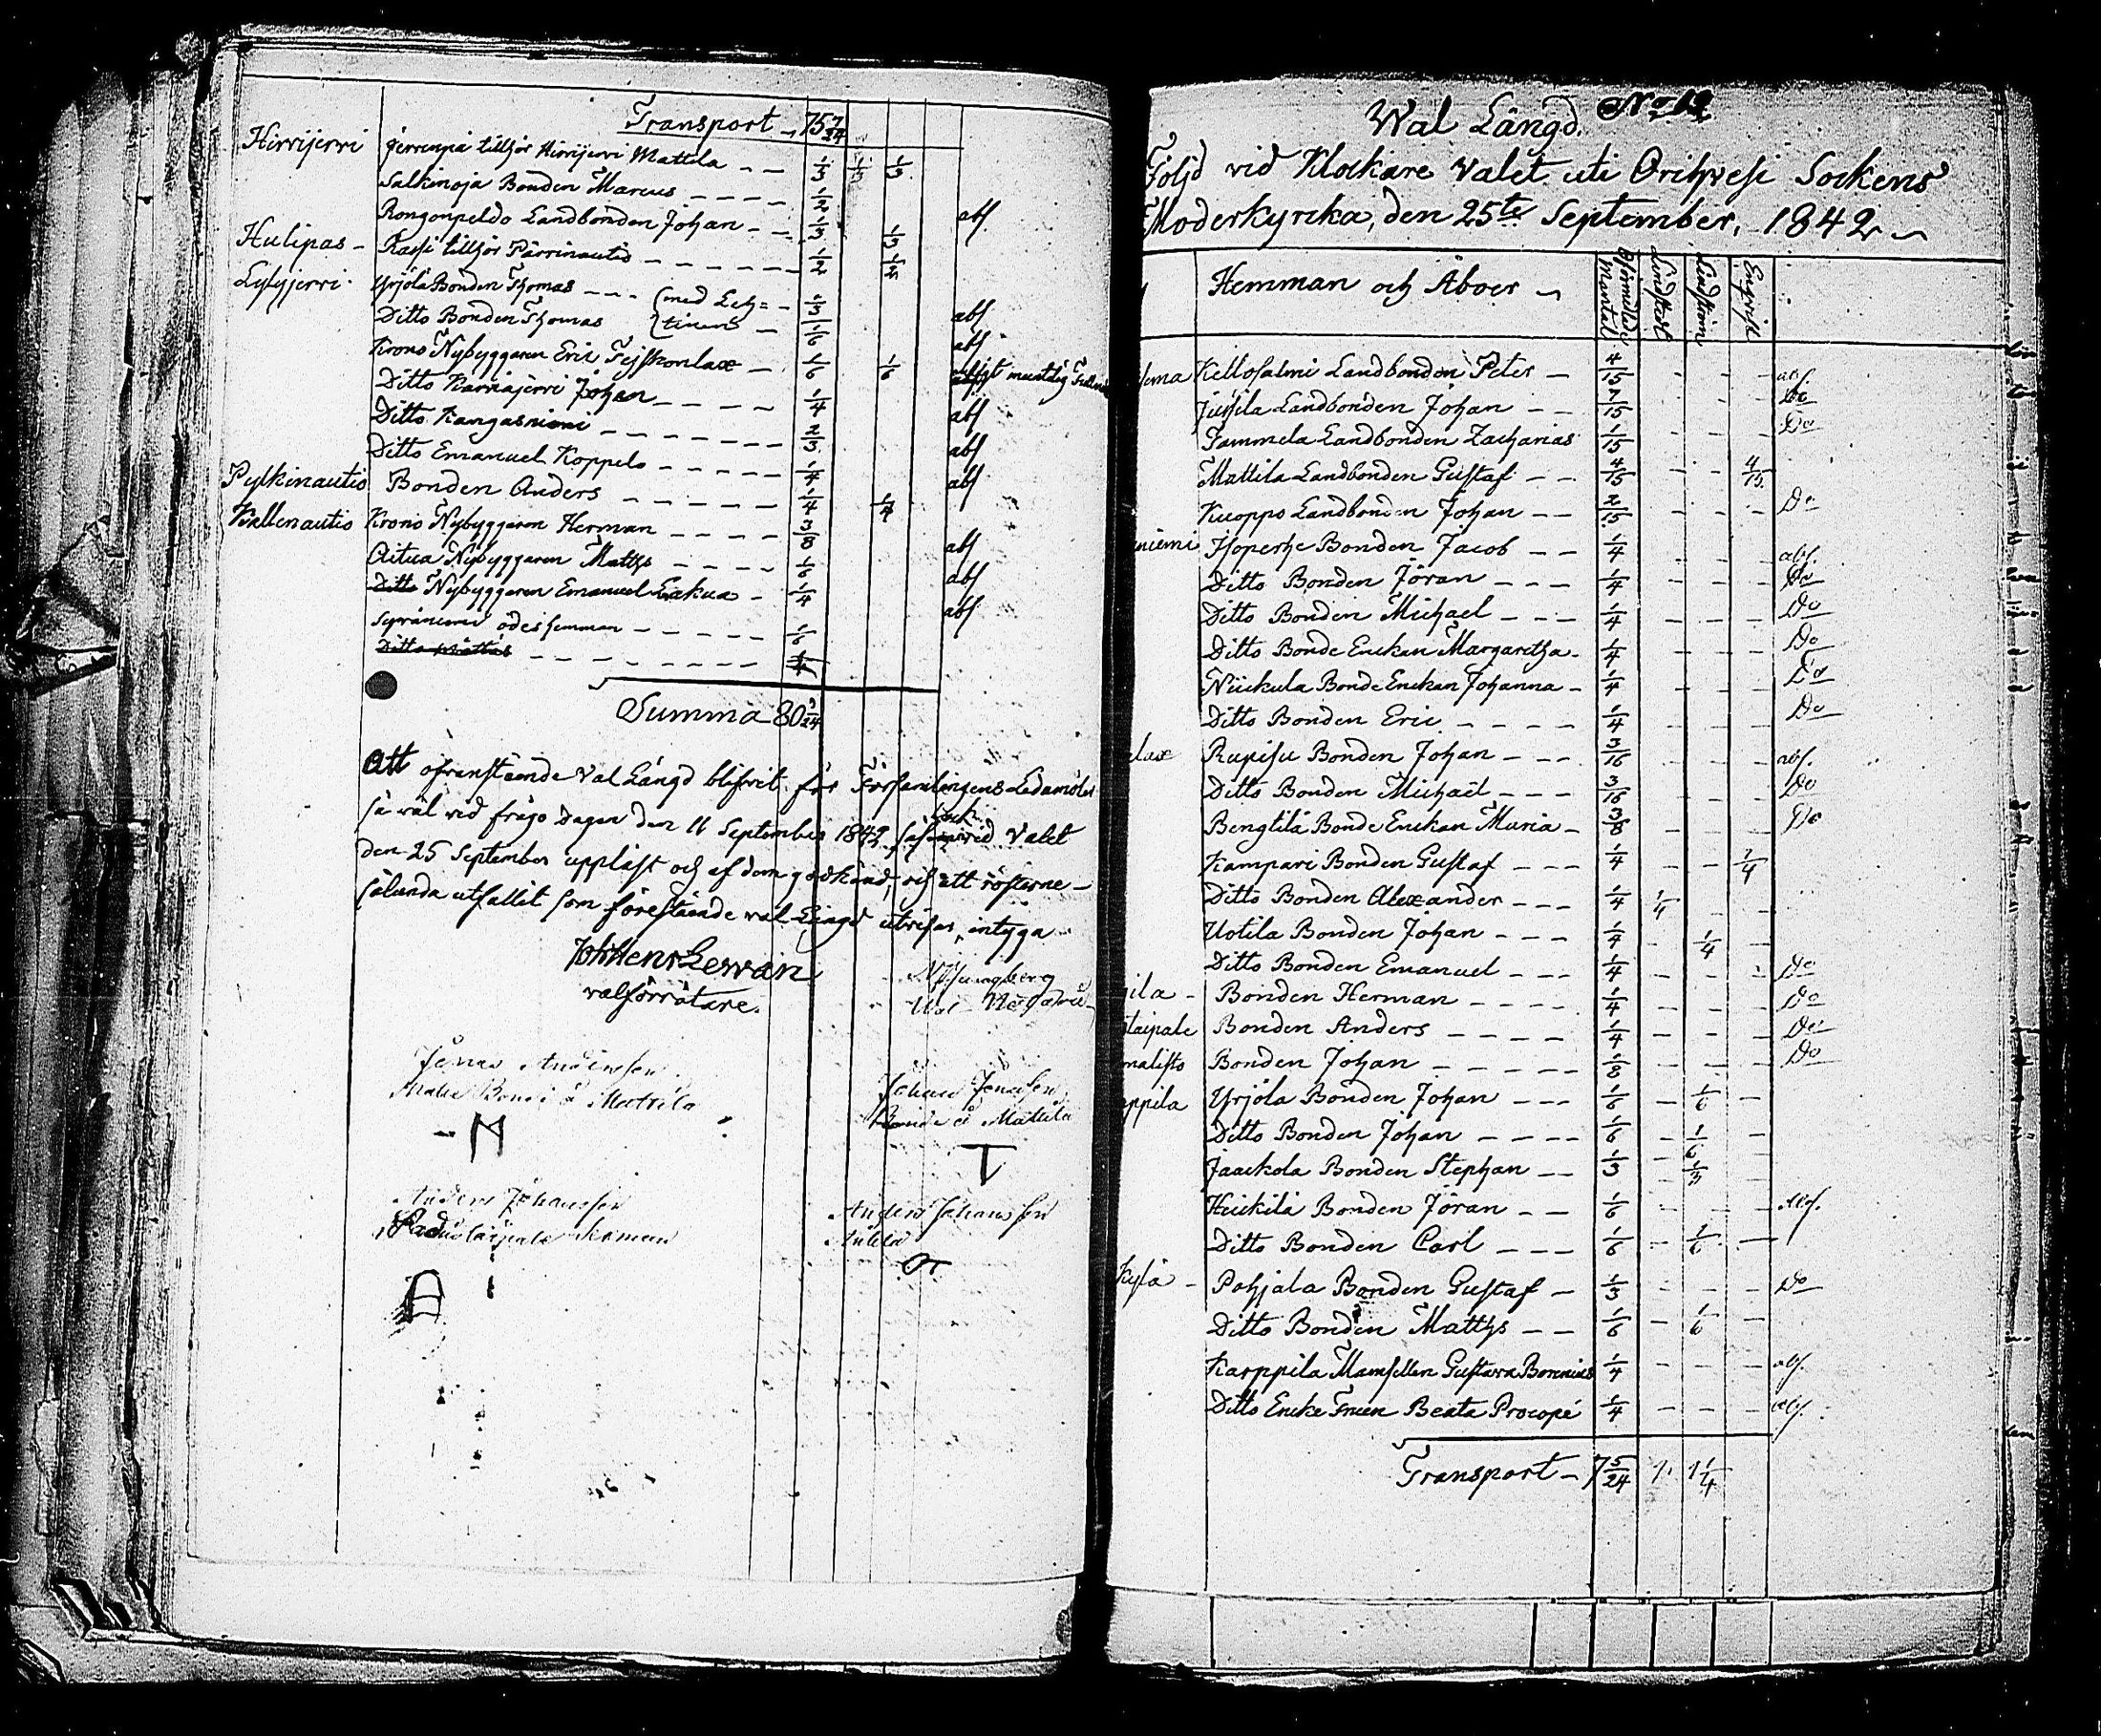 Transport 75 7/24
Hirvijervi Jerrenpä tillhör Hirvijervi Mattila 1/3 1/3 1/3
Salkinoja Bonden Marcus 1/2 abs.
Rongonpeldo Landbonden Johan 1/3 1/3
Hulipas Rassi tillhör Pärrinautio 1/2 1/2
Lylyjerri Yrjölä Bonden Thomas (med Leh= 2/3 abs
Ditto Bonden Thomas tinen 1/6 abs
Krono Nybyggaren Eric 1/6 1/6 muntelig
Ditto Karnajerri Johan 1/4 abs
Ditto Kangasniemi 2/3 abs
Ditto Emanuel Koppelo 1/4 abs
Pylkinautio Bonden Anders 1/4 1/4
Kallenautio Krono Nybyggaren Herman 3/8 abs
Aitua Nybyggaren Matths 1/6 abs
Ditto Nybyggaren Emanuel Liakua 1/4 abs
ödeshemman 1/6
Ditto
Summa 80 9/24
Att ofvanstående Val Längd blifvit för Församlingens Ledamöter
så väl vid frågo Dagen den 11 September 1842 som ock vid Valet
den 25 September uppläst och af dem godkänd, och att rösterne
sålunda utfallit som förestående val Längd utvisar, intyga
Joh Henr Lewán
valförrättare.
Ljungberg
Wal
Jonas Andersson
Bonde å Mattila
M
Johan Jonasson
Bonde å Mattila
T
Anders Johansson
Herman
A
Anders Johansson
Anttila
Wal Längd. No 12
Följd vid Klockare Valet uti Orihvesi Sockens
Moderkyrka, den 25te September, 1842
Hemman och Åboer Oförmedladt Mantal Lindstedt Lindström Engvist
Kellosalmi Landbonden Peter 4/15 abs.
Jussila Landbonden Johan 7/15 Do
Tammela Landbonden Zacharias 1/15 Do
Mattila Landbonden Gustaf 4/15 4/15
Kuoppo Landbonden Johan 2/15 Do
niemi Isoperhe Bonden Jacob 1/4 abs.
Ditto Bonden Jöran 1/4 Do
Ditto Bonden Michael 1/4 Do
Ditto Bonde Enckan Margaretha 1/4 Do
Niickula Bonde Enckan Johanna 1/4 Do
Ditto Bonden Eric 1/4 Do
lax Rupisu Bonden Johan 3/16 abs.
Ditto Bonden Michaël 3/16 Do
Bengtilä Bonde Enckan Maria 3/8 Do
Kampari Bonden Gustaf 1/4 1/4
Ditto Bonden Alexander 1/4 1/4
Uotila Bonden Johan 1/4 1/4
Ditto Bonden Emanuel 1/4 Do
ila Bonden Herman 1/4 Do
taipale Bonden Anders 1/4 Do
malisto Bonden Johan 1/8 Do
ppila Yrjölä Bonden Johan 1/6 1/6
Ditto Bonden Johan 1/6 1/6
Jaackola Bonden Stephan 1/3 1/3
Heickilä Bonden Jöran 1/6 abs.
Ditto Bonden Carl 1/6 1/6
Kylä Pohjala Bonden Gustaf 1/3 Do
Ditto Bonden Matths 1/6 1/6
Karppila Mamsellen Gustava Borenius 1/4 abs.
Ditto Encke Fruen Beata Procopé 1/4 abs.
Transport 7 5/24 1 1/4